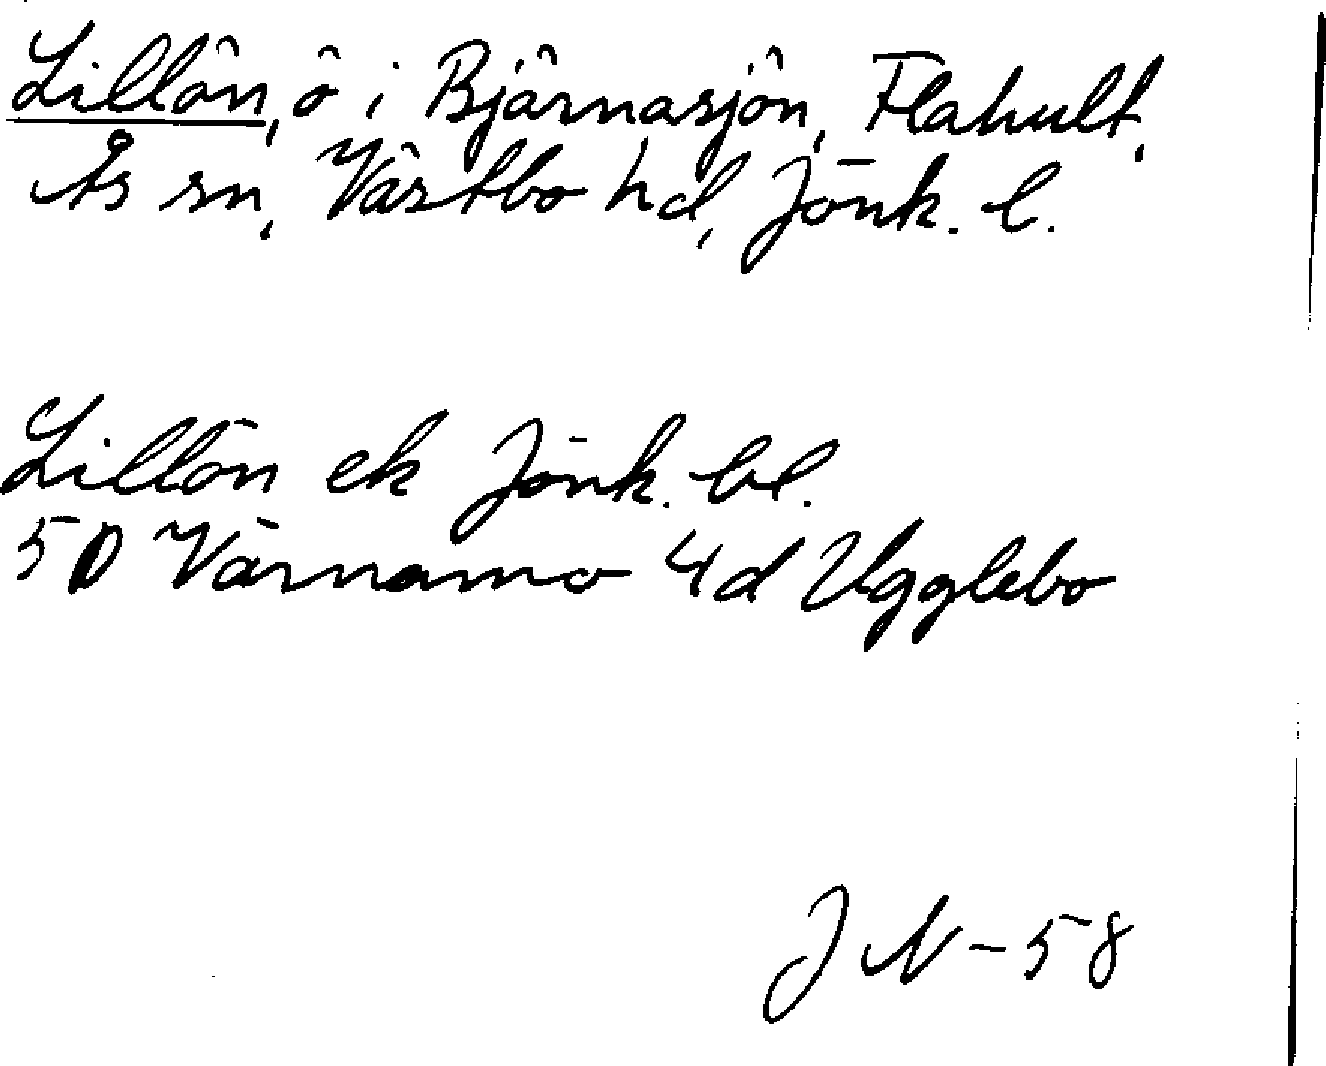 Lillön, ö i Bjärnasjön, Flahult,
Ås sn, Västbo hd, Jönk. l.
Lillön ek Jönk. bl.
5D Värnamo 4d Ugglebo
JN-58